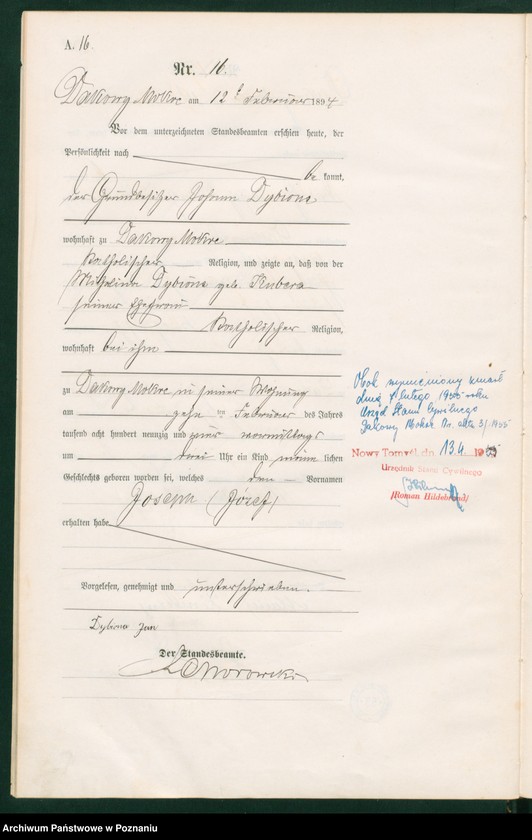 A. 16
Nr. 16.
Dakowy Mokre am 12t Februar 1894
Vor dem unterzeichneten Standesbeamten erschien heute, der
Persönlichkeit nach
be kannt,
der Grundbesitzer Johann Dybiona
wohnhaft zu Dakowy Mokre
katholischer Religion, und zeigte an, daß von der
Michalina Dybiona geb. Kubera
seiner Ehefrau
katholischer Religion,
wohnhaft bei ihm
zu Dakowy Mokre in seiner Wohnung
am zehn ten Februar des Jahres
tausend acht hundert neunzig und vier vormittags
um drei Uhr ein Kind männ lichen
Geschlechts geboren worden sei, welches den Vornamen
Joseph (Józef)
erhalten habe
Vorgelesen, genehmigt und unterschrieben.
Dybiona Jan
Der Standesbeamte.
Obok wymieniony zmarł
dnia 7 lutego 1955 roku
Urząd Stanu Cywilnego
Dakowy Mokre Nr aktu 3/1955
Nowy Tomyśl dn. 13.4. 1955
Urzędnik Stanu Cywilnego
/Roman Hildebrand/
Archiwum Państwowe w Poznaniu